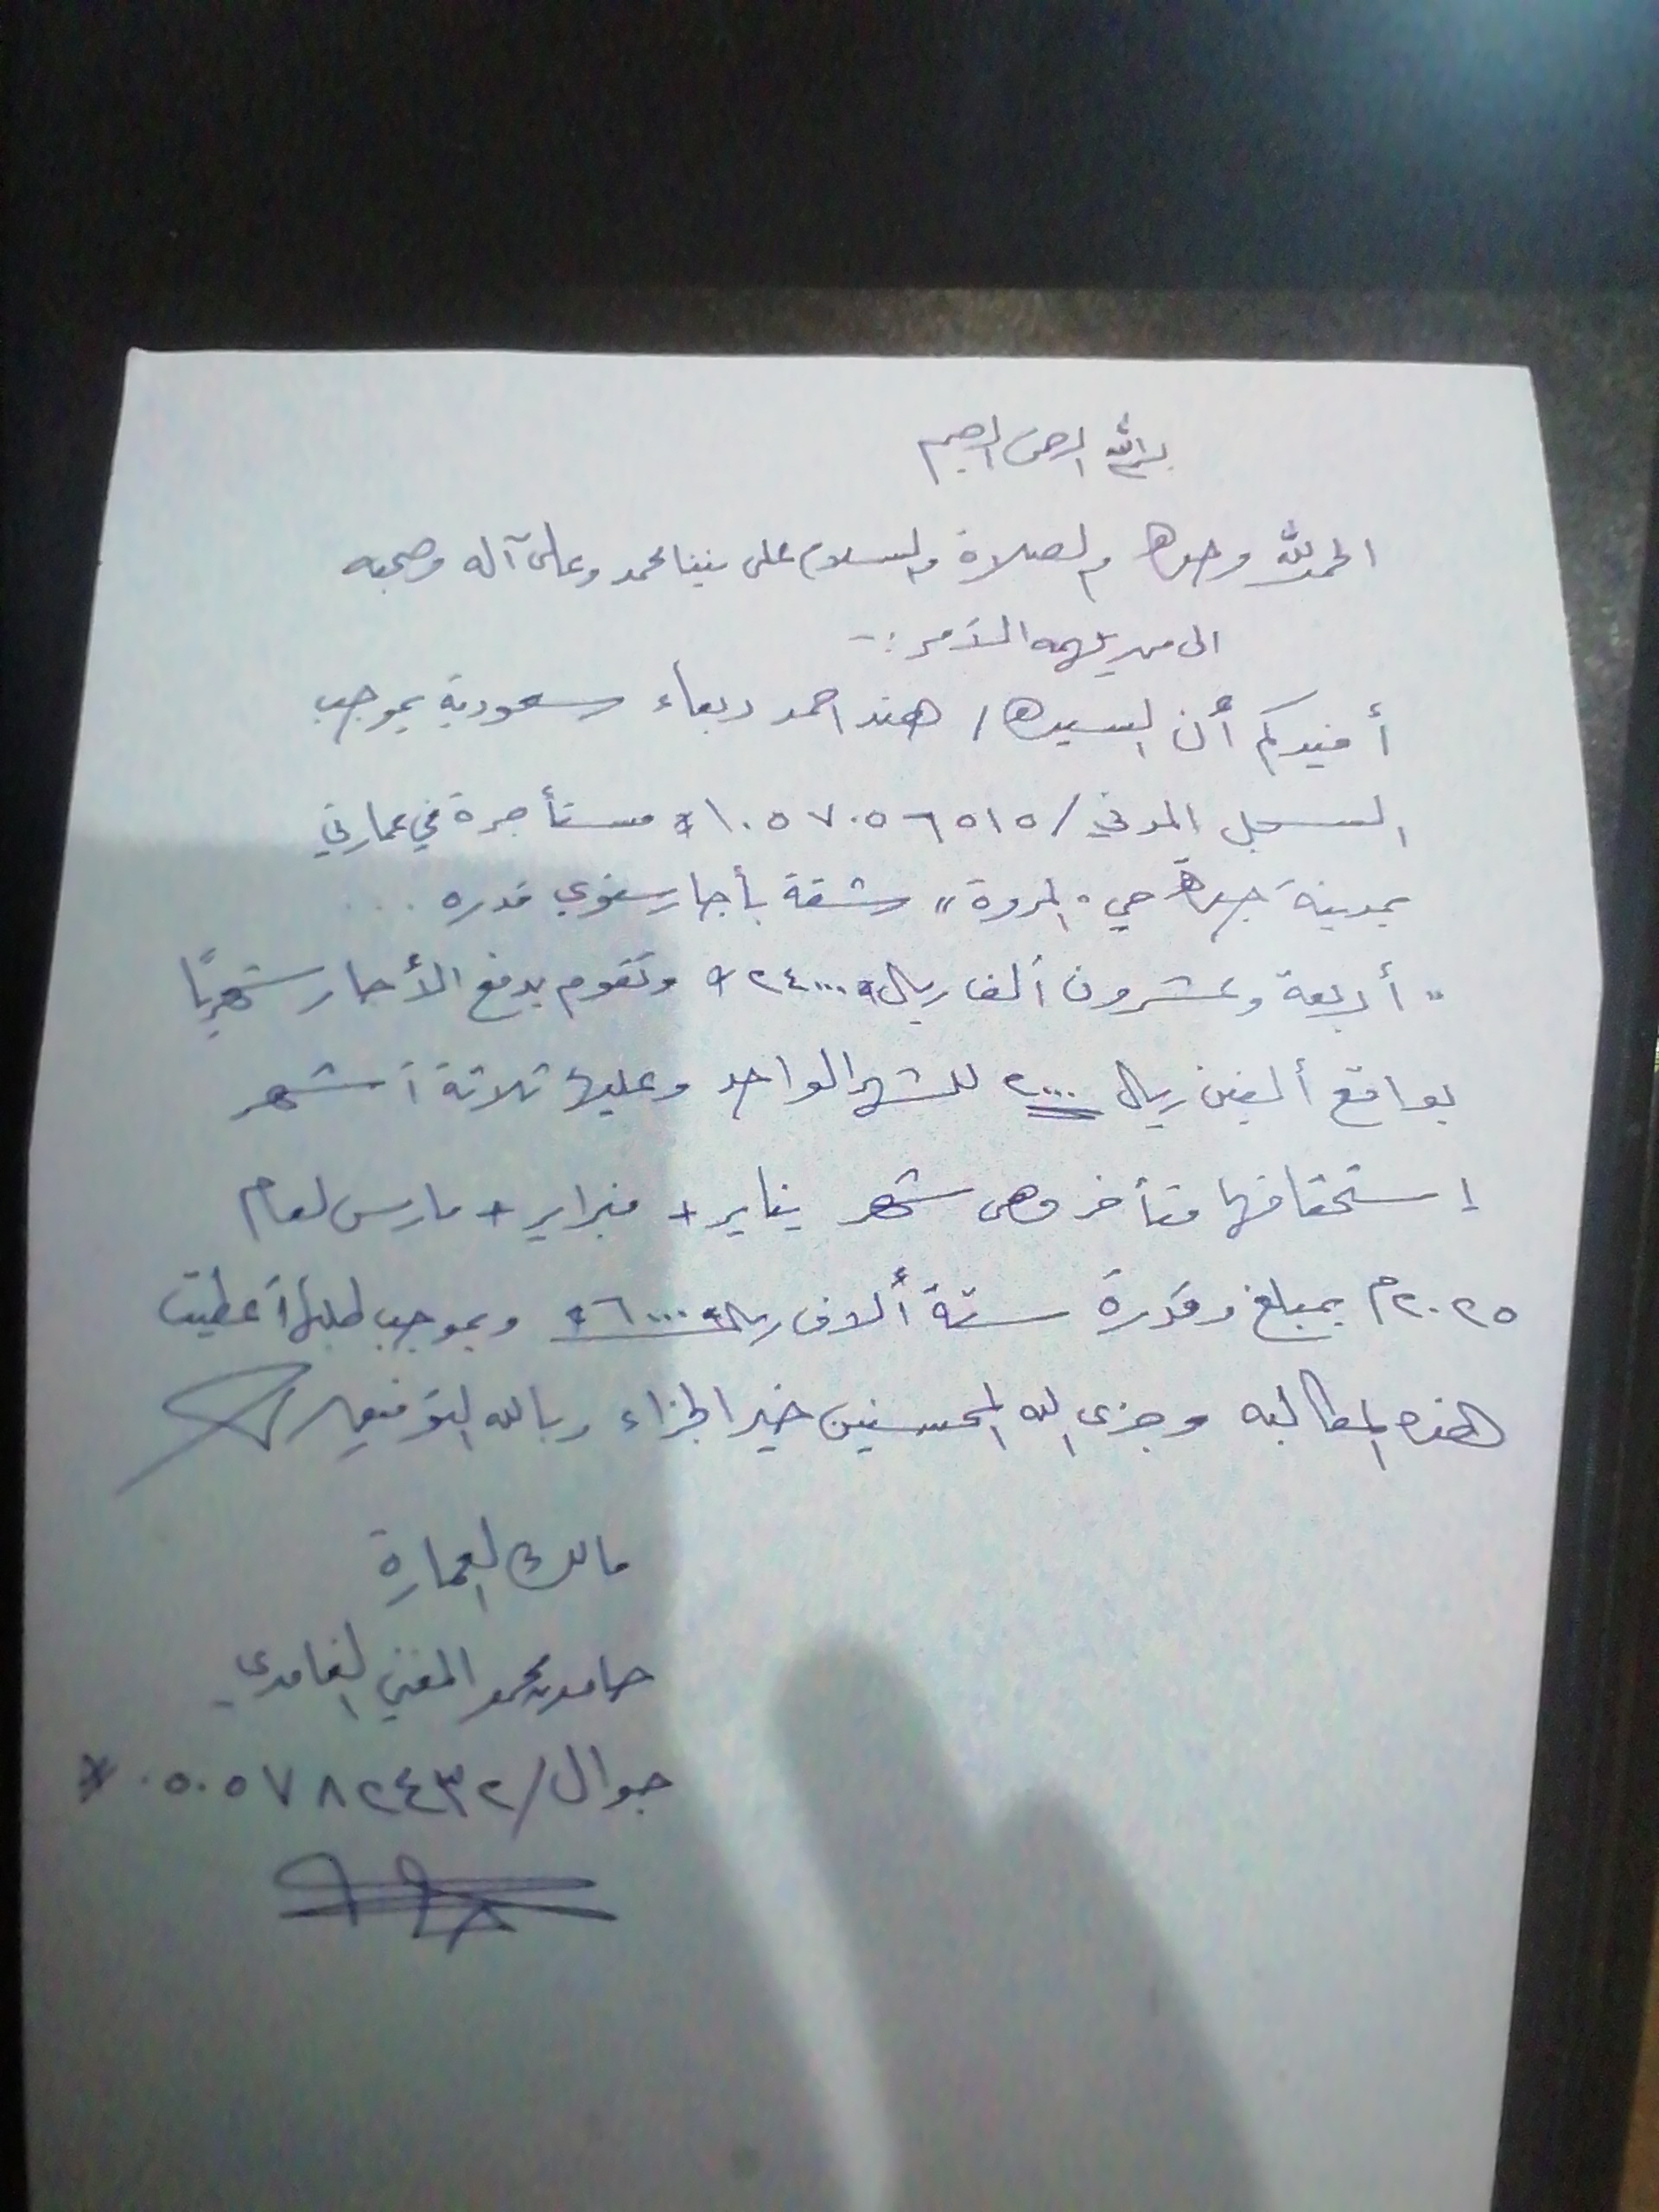 بسم الله الرحمن الرحيم
الحمد لله وحده والصلاة والسلام على نبينا محمد وعلى آله وصحبه
الى من يهمه الأمر :-
أفيدكم أن السيدة / هند احمد ربعاء سعودية بموجب
السجل المدني / ١٠٥٧٠٥٦٥١٥ مستأجرة في عمارتي
بمدينة جده حي "المروة" شقة بأجار سنوي قدره ...
" أربعة وعشرون ألف ريال ٢٤٠٠٠ وتقوم بدفع الأجار شهريًا
بواقع ألفين ريال ٢٠٠٠ للشهر الواحد وعليها ثلاثة أشهر
إستحقاقها متأخر وهى شهر يناير + فبراير + مارس لعام
٢٠٢٥م بمبلغ وقدرة ستة ألاف ريال ٦٠٠٠ وبموجب طلبها أعطيت
هذه المطالبه وجزى الله المحسنين خير الجزاء وبالله التوفيق
مالك العمارة
حامد محمد المغني الغامدي
جوال / ٠٥٠٥٧٨٢٤٣٢